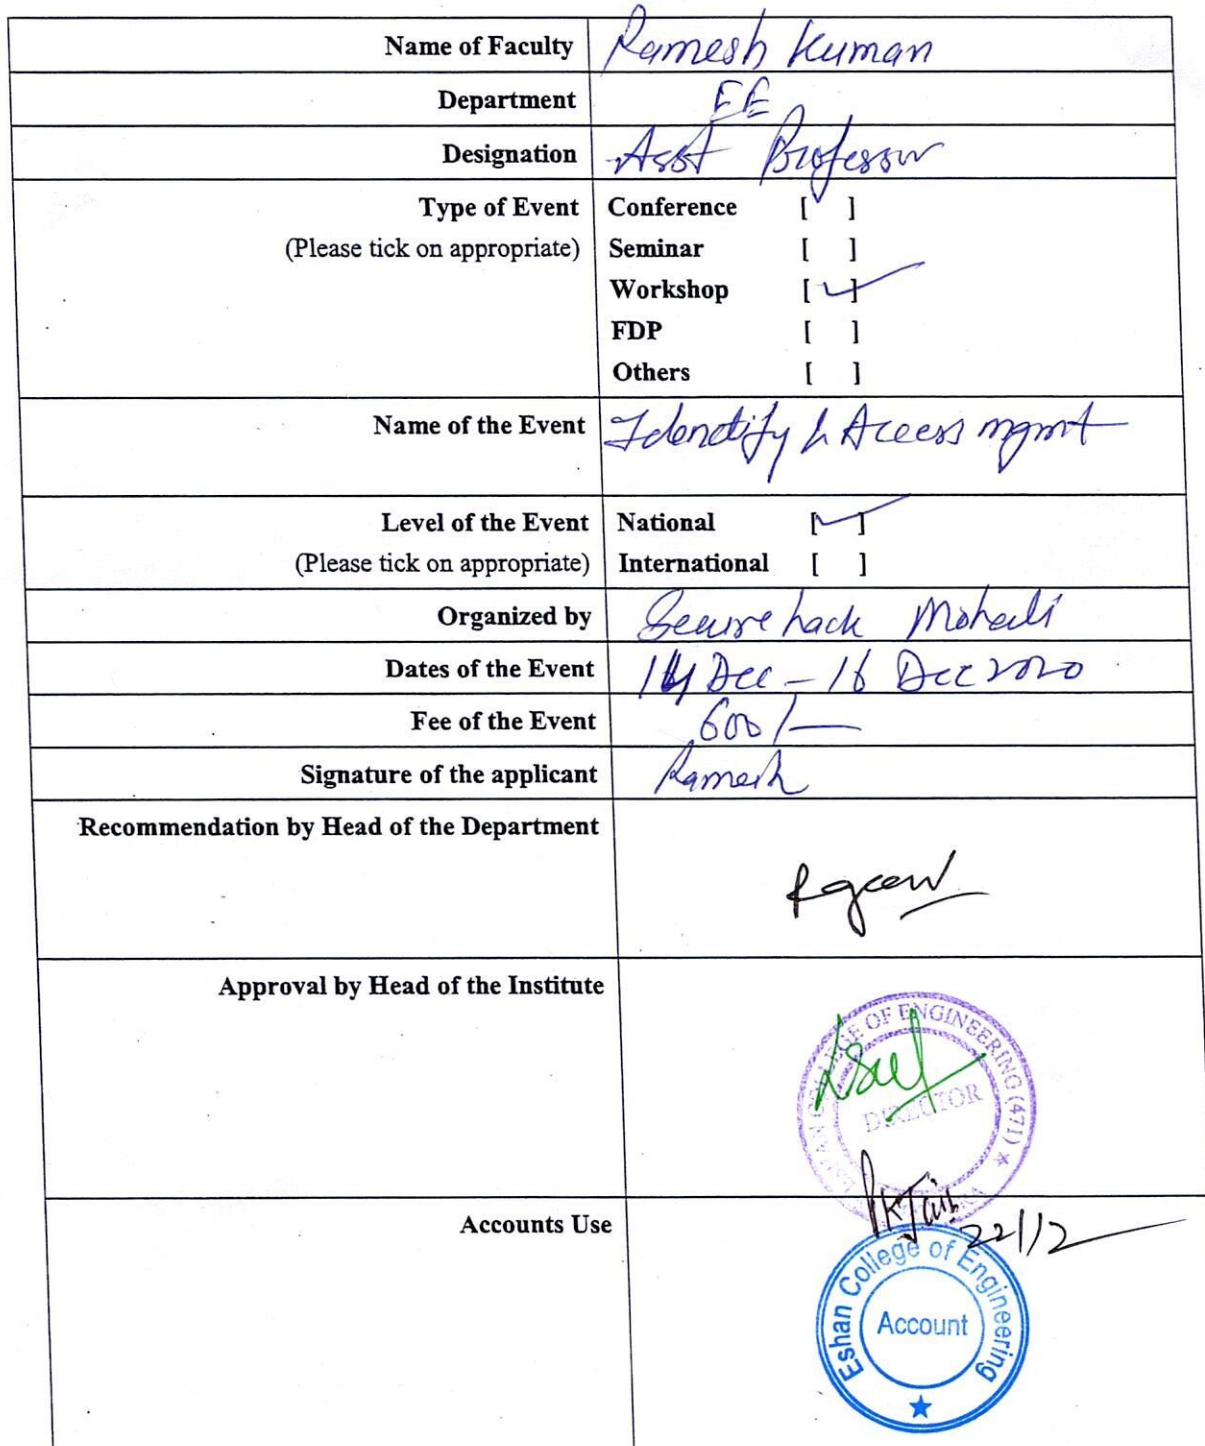 Name of Faculty Ramesh Kuman
Department EE
Designation Asst Professor
Type of Event Conference [ ]
(Please tick on appropriate) Seminar [ ]
Workshop [✓]
FDP [ ]
Others [ ]
Name of the Event Idendify & Access mgmt
Level of the Event National [✓]
(Please tick on appropriate) International [ ]
Organized by Securehack Mohali
Dates of the Event 14 Dec – 16 Dec 2020
Fee of the Event 600/—
Signature of the applicant Ramesh
Recommendation by Head of the Department
Approval by Head of the Institute
ESHAN COLLEGE OF ENGINEERING (471) ★
DIRECTOR
PKJain
Accounts Use 22/12
Eshan College of Engineering
Account
★